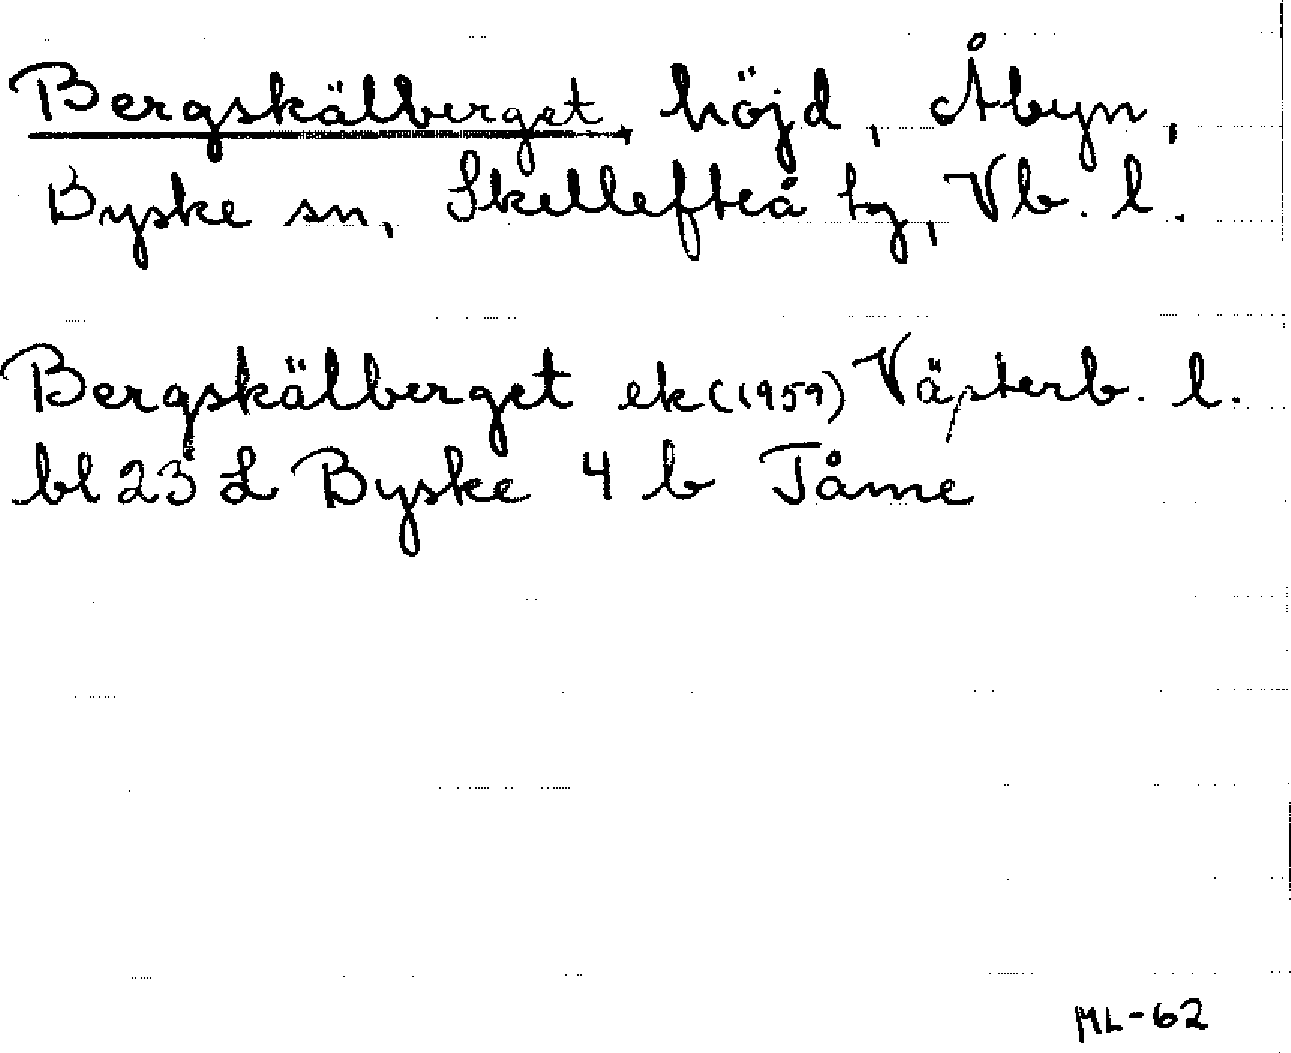 Bergskälberget, höjd, Åbyn,
Byske sn, Skellefteå tg, Vb. l.
Bergskälberget ek (1959) Västerb. l.
bl 23 L Byske 4 b Tåme
ML-62